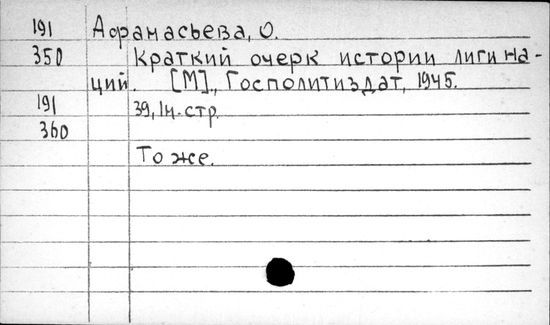 191 Афанасьева, О.
350 Краткий очерк истории лиги на-
ций. [М]., Госполитиздат, 1945.
191 39, 1 н. стр.
360
То же.